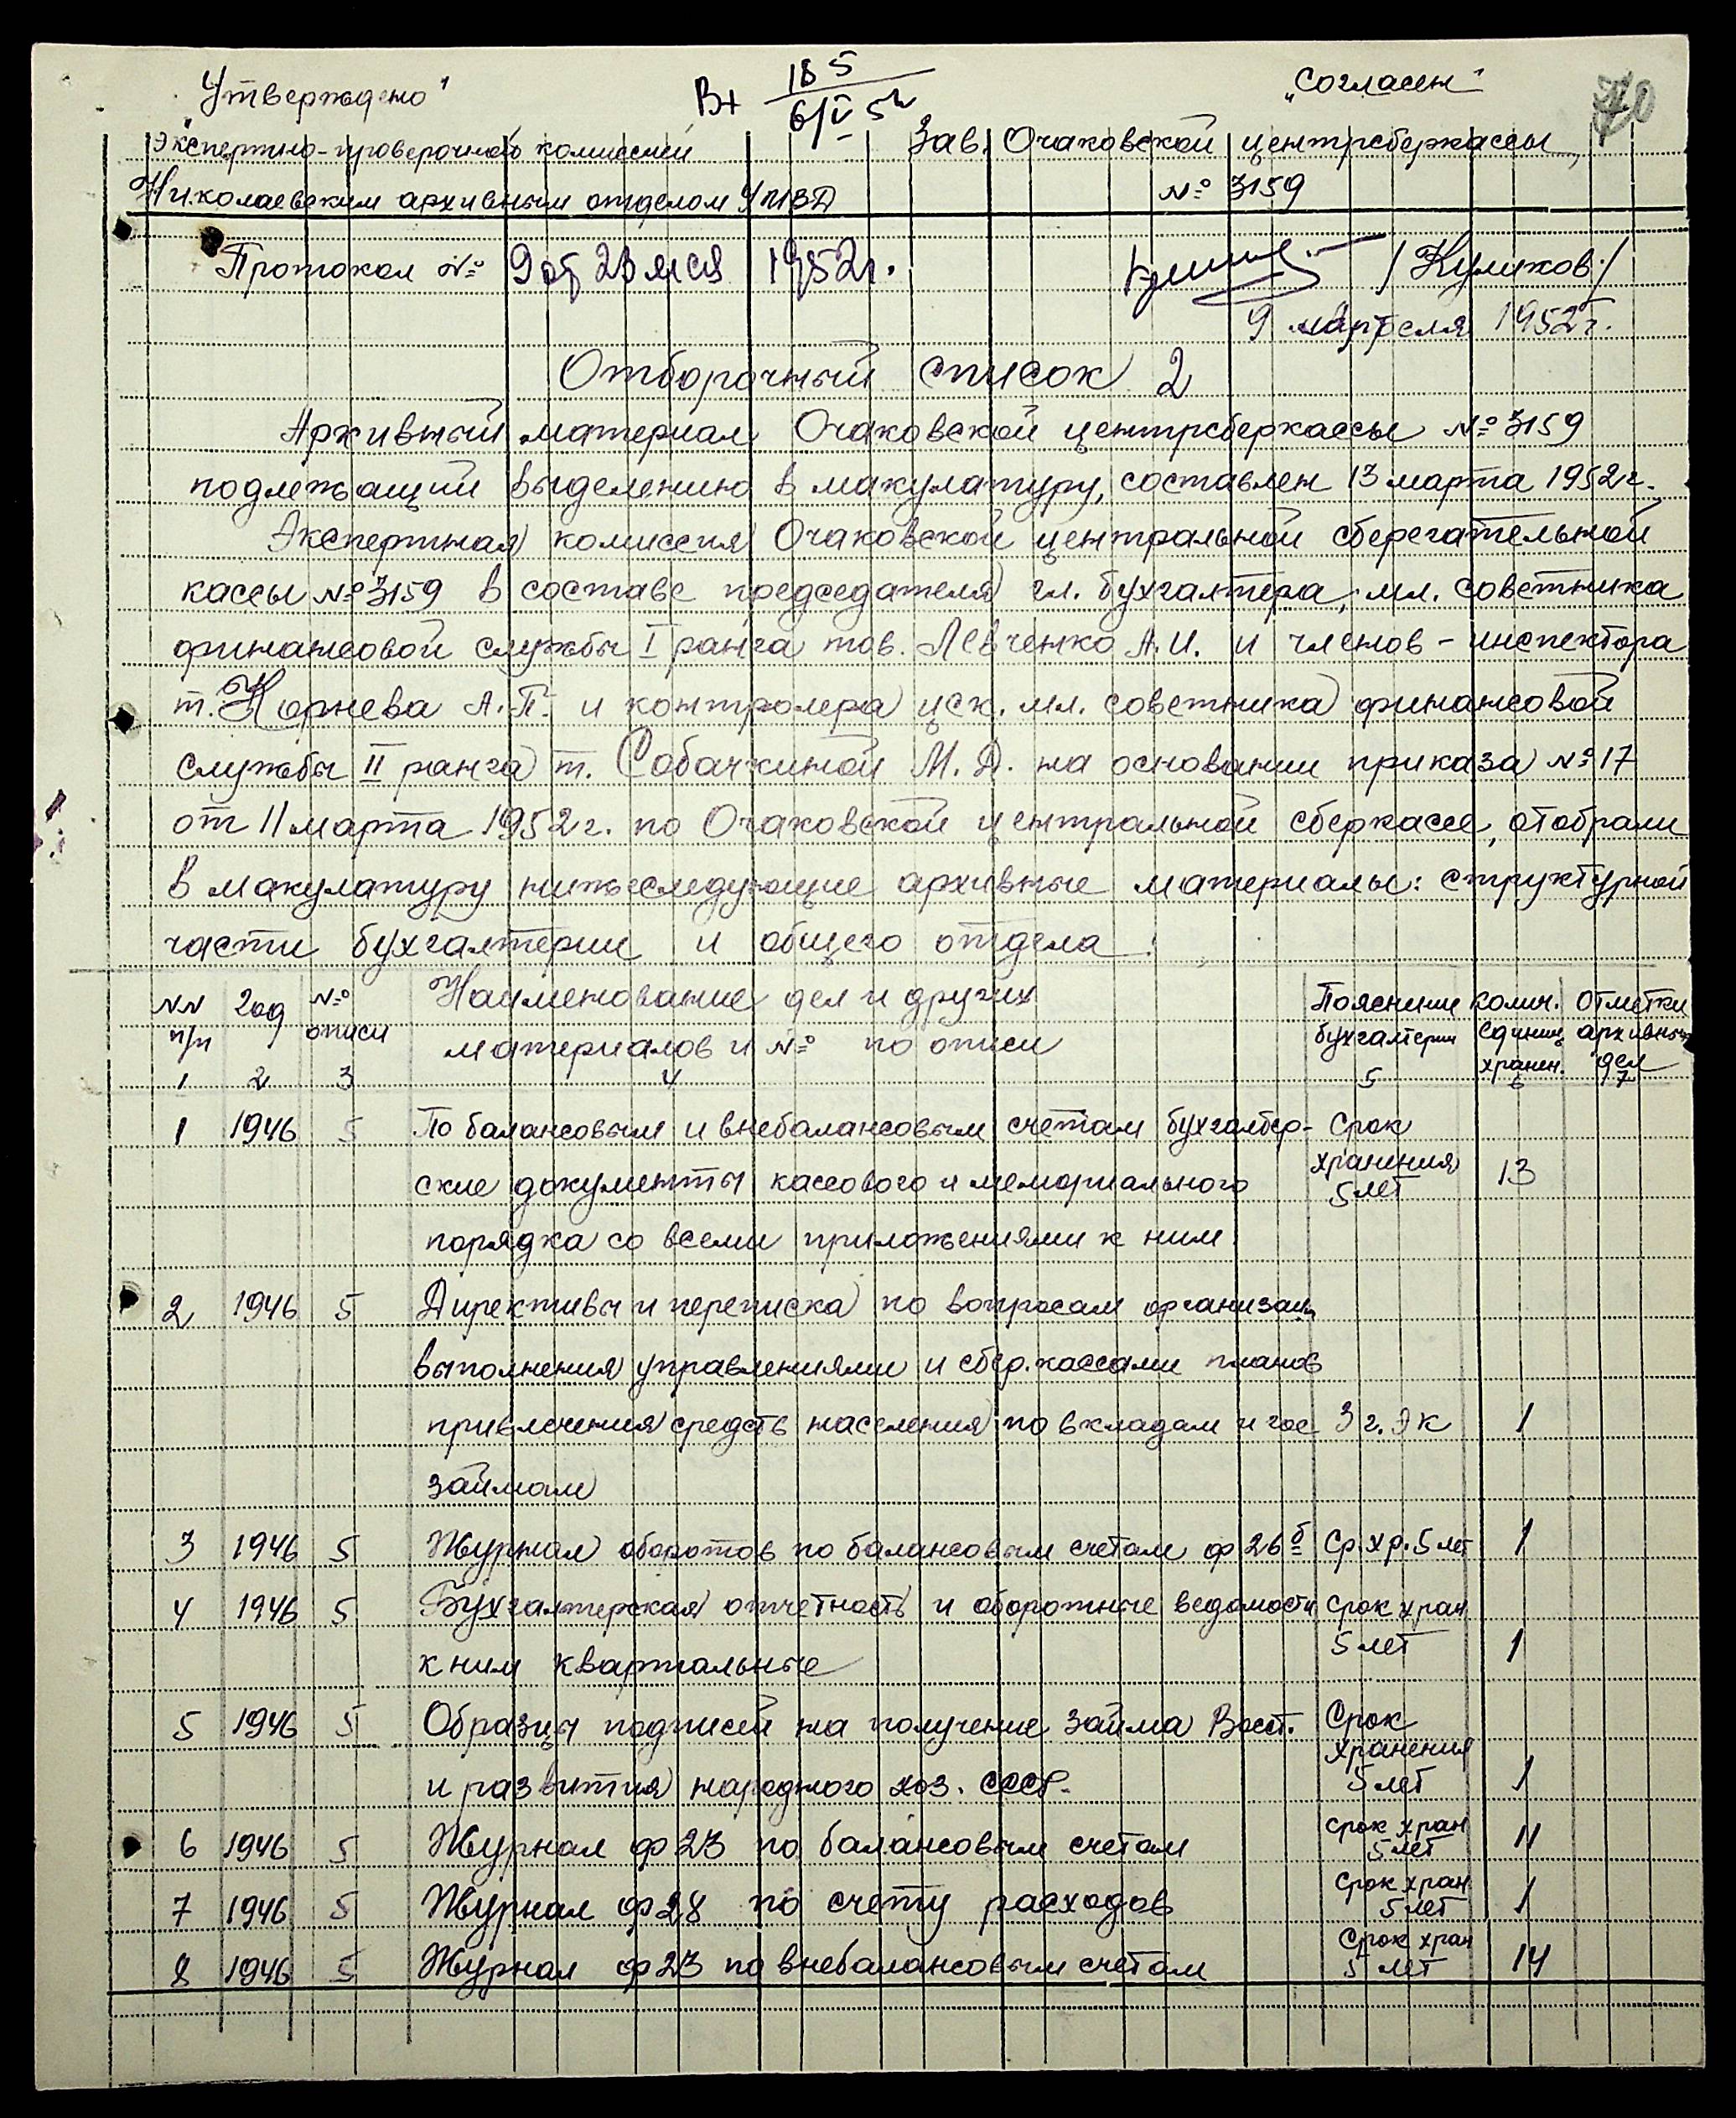 „Утверждено"
Вх 185
6/V 52
„Согласен"
70
Экспертно-проверочной комиссией
Зав. Очаковской центрсберкассы
Николаевским архивным отделом УМВД
№ 3159
Протокол № 9 от 23 мая 1952г.
/Куликов/
9 апреля 1952г.
Отборочный список 2
Архивный материал Очаковской центрсберкассы № 3159
подлежащий выделению в макулатуру, составлен 13 марта 1952г.
Экспертная комиссия Очаковской центральной сберегательной
кассы № 3159 в составе председателя гл. бухгалтера, мл. советника
финансовой службы I ранга тов. Левченко А.И. и членов - инспектора
т. Корнева А.П. и контролера цск. мл. советника финансовой
службы II ранга т. Собачкиной М.Д. на основании приказа № 17
от 11 марта 1952г. по Очаковской центральной сберкассе, отобрали
в макулатуру нижеследующие архивные материалы: структурной
части бухгалтерии и общего отдела:
NN п/п
Год
№ описи
Наименование дел и других
материалов и № по описи
Пояснение бухгалтерии
колич. единиц хранен.
Отметки архивных дел
1 2 3 4 5 6 7
1 1946 5 По балансовым и внебалансовым счетам бухгалтер- Срок
ские документы кассового и мемориального хранения 5 лет 13
порядка со всеми приложениями к ним.
2 1946 5 Директивы и переписка по вопросам организац.
выполнения управлениями и сбер.кассами планов
привлечения средств населения по вкладам и гос 3 г. ЭК 1
займам
3 1946 5 Журнал оборотов по балансовым счетам ф 26б Ср.хр. 5 лет 1
4 1946 5 Бухгалтерская отчетность и оборотные ведомости срок хран
к ним квартальные 5 лет 1
5 1946 5 Образцы подписей на получение займа Восст. Срок
хранения
и развития народного хоз. СССР. 5 лет 1
6 1946 5 Журнал ф 23 по балансовым счетам срок хран 5 лет 11
7 1946 5 Журнал ф 28 по счету расходов срок хран 5 лет 1
8 1946 5 Журнал ф 23 по внебалансовым счетам Срок хран 5 лет 14